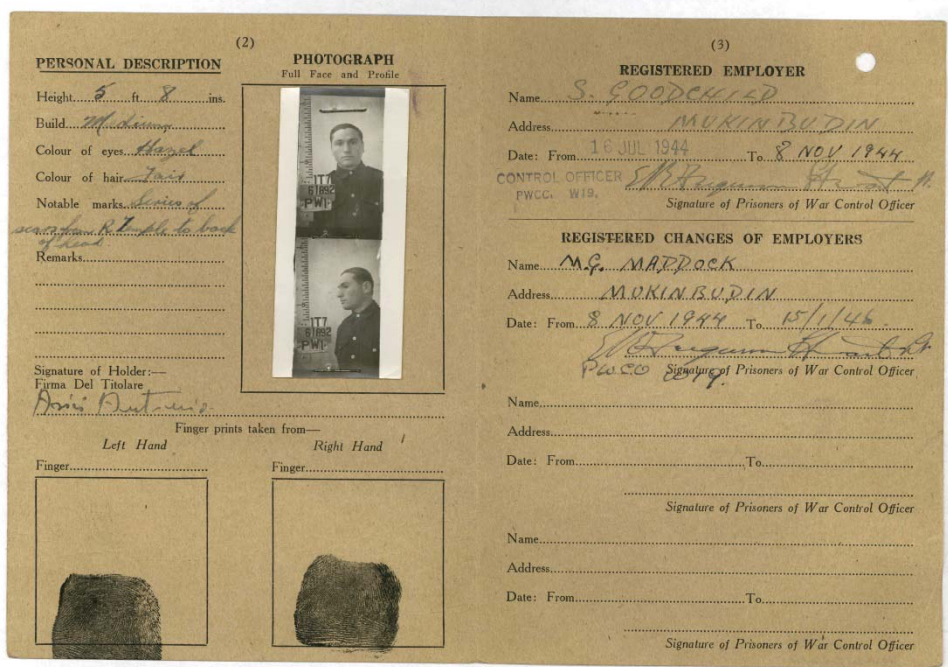 (2)
PERSONAL DESCRIPTION
Height 5 ft 8 ins.
Build Medium
Colour of eyes Hazel
Colour of hair Fair
Notable marks Series of
scars from R Temple to back
of head
Remarks
Signature of Holder:—
Firma Del Titolare
PHOTOGRAPH
Full Face and Profile
IT7
61892
PWI
IT7
61892
PWI
Finger prints taken from—
Left Hand
Right Hand
Finger
Finger
(3)
REGISTERED EMPLOYER
Name S. GOODCHILD
Address MUKINBUDIN
Date: From 16 JUL 1944 To 8 NOV 1944
CONTROL OFFICER
PWCC. W19.
Signature of Prisoners of War Control Officer
REGISTERED CHANGES OF EMPLOYERS
Name M.G. MADDOCK
Address MUKINBUDIN
Date: From 8 NOV 1944 To 15/1/46
PWCO W19.
Signature of Prisoners of War Control Officer
Name
Address
Date: From To
Signature of Prisoners of War Control Officer
Name
Address
Date: From To
Signature of Prisoners of War Control Officer